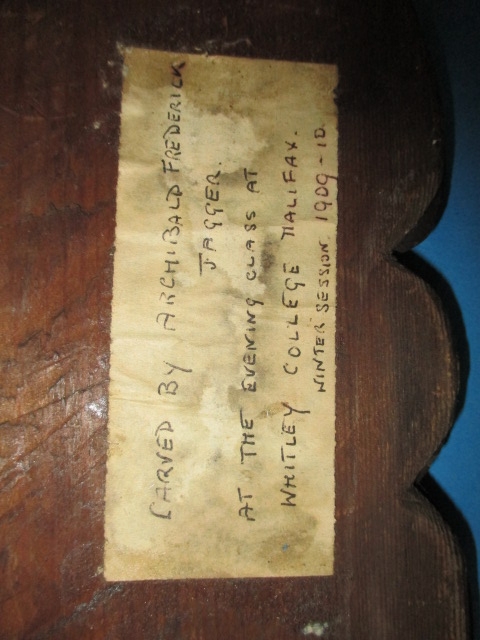 CARVED BY ARCHIBALD FREDERICK
JAGGER.
AT THE EVENING CLASS AT
WHITLEY COLLEGE HALIFAX.
WINTER SESSION. 1909-10.